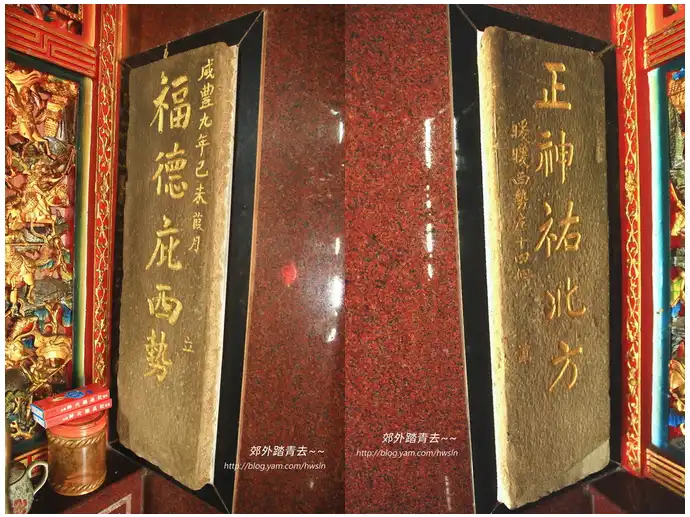 咸豐九年己未葭月
立
福德庇西勢
正神祐北方
暖暖西勢庄十四佃
郊外踏青去~~
http://blog.yam.com/hwsln
郊外踏青去~~
http://blog.yam.com/hwsln